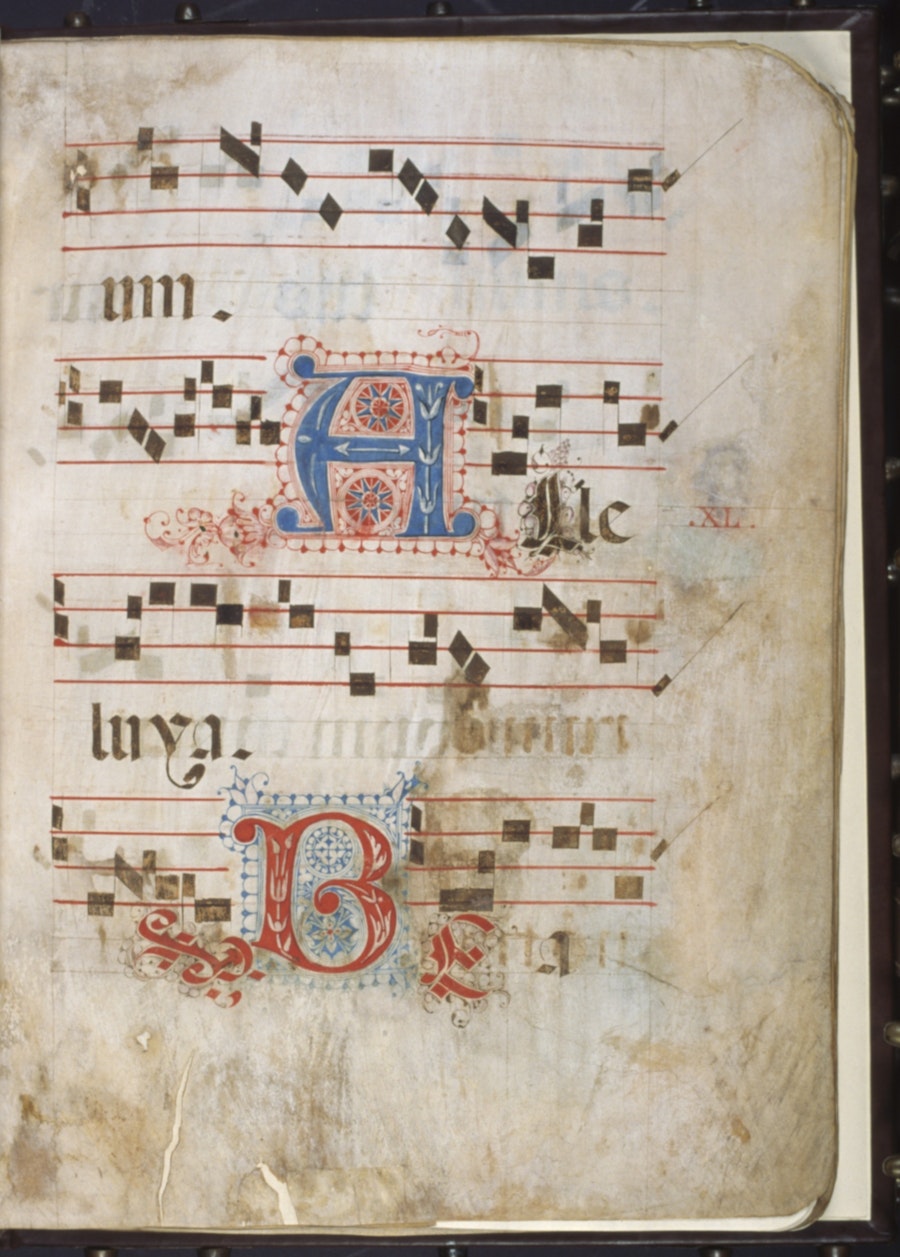 um.
Alle
.XL.
luya.
℣. BEa